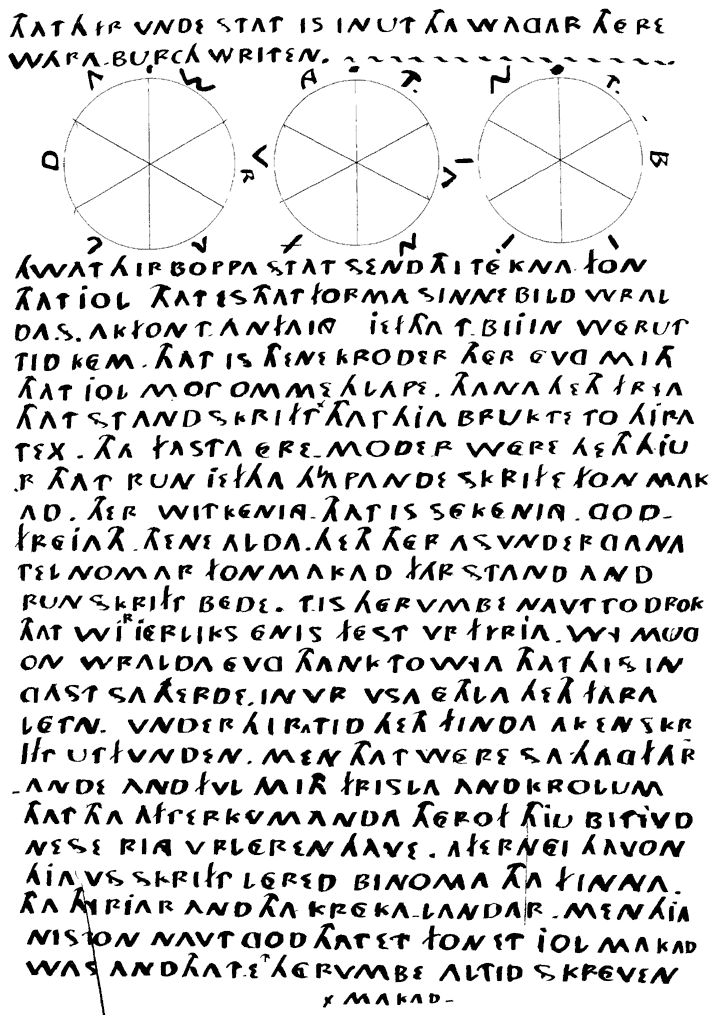 ÞAT HIR VNDE STAT IS INUT ÞA WAGAR ÞERE
WARA.BURCH WRITEN.
HWAT HIR BOPPA STAT SEND ÞI TEKNA FON
ÞAT IOL ÞAT IS ÞAT FORMA SINNEBILD WRAL
DAS. AK FON T.ANFAIG IEFÞA T.BIJIN WERUT
TID KEM. ÞAT IS ÞENE KRODER ÞER EVG MIÞ
ÞAT IOL MOT OMME HLAPE. ÞANA HEÞ FRIA
ÞAT STANDSKRIFT ÞAT HIA BRUKTE TO HIRA
TEX. ÞA FASTA ERE-MODER WERE HEÞ HIU
.R ÞAT RUN IEFÞA HLAPANDE SKRIFT FON MAK
AD. ÞER WITKENIG ÞAT IS SEKENIG. GOD-
FREIAÞ. ÞENE ALDA. HEÞ ÞER ASVNDERGANA
TELNOMAR FON MAKAD FAR STAND AND
RUN SKRIFT BEDE. T.IS HERVMBE NAVT TO DROK
ÞAT WI.R IERLIKS ENIS FEST VR FYRIA. WY MUG
ON WRALDA EVG ÞANK TO WYA ÞAT HI SIN
GAST SA HERDE. IN VR VSA EÞLA HEÞ FARA
LETN. VNDER HIRA TID HEÞ FINDA AK EN SKR
IFT UTFVNDEN. MEN ÞAT WERE SA HAGFAR
-ANDE AND FVL MIÞ FRISLA AND KROLUM
ÞAT ÞA AFTERKVMANDA ÞEROF ÞIU BITIVD
NESE RIG VRLEREN HAVE. AFTERNEI HAVON
HIA VS SKRIFT LERED BINOMA ÞA FINNA.
ÞA ÞIRIAR AND ÞA KREKA-LANDAR. MEN HIA
NISTON NAVT GOD ÞAT ET FON ET IOL MAKAD
WAS AND ÞAT.ET HERVMBE ALTID SKREVEN
x MAKAD-